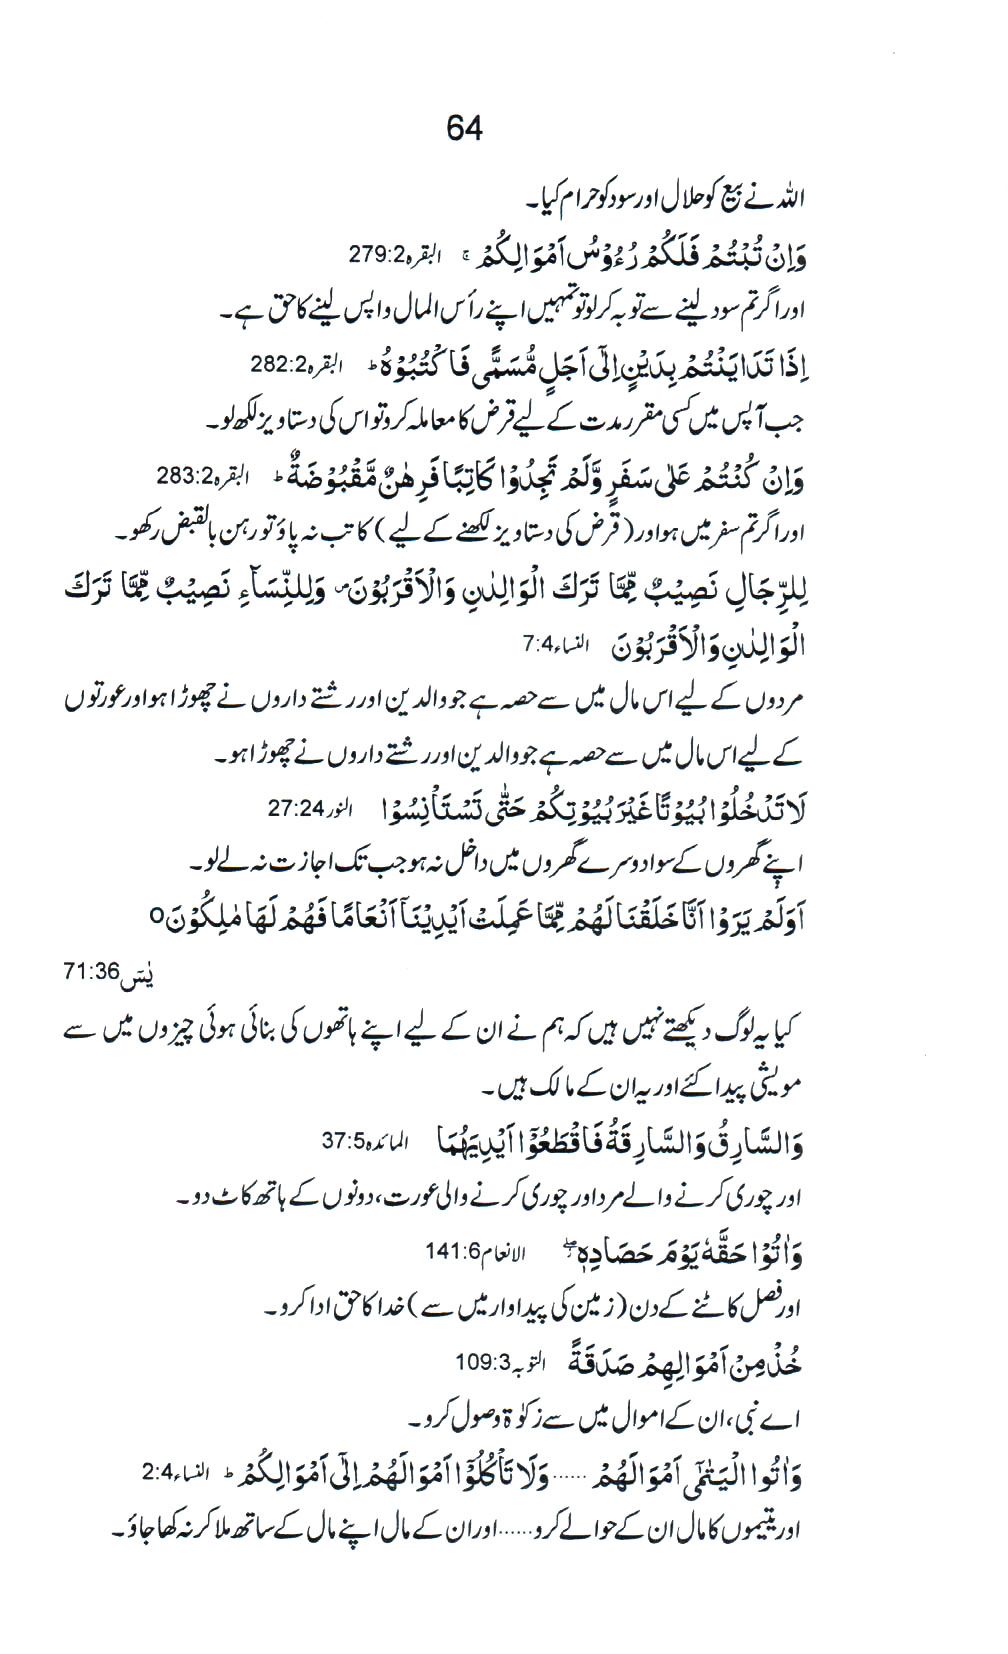 64
اللہ نے بیع کو حلال اور سود کو حرام کیا۔
وَاِنْ تُبْتُمْ فَلَكُمْ رُءُوْسُ اَمْوَالِكُمْ ۚ البقرہ 279:2
اور اگر تم سود لینے سے توبہ کرلو تو تمہیں اپنے رأس المال واپس لینے کا حق ہے۔
اِذَا تَدَايَنْتُمْ بِدَيْنٍ اِلٰٓى اَجَلٍ مُّسَمًّى فَاكْتُبُوْهُ ؕ البقرہ 282:2
جب آپس میں کسی مقرر مدت کے لیے قرض کا معاملہ کرو تو اس کی دستاویز لکھ لو۔
وَاِنْ كُنْتُمْ عَلٰى سَفَرٍ وَّلَمْ تَجِدُوْا كَاتِبًا فَرِهٰنٌ مَّقْبُوْضَةٌ ؕ البقرہ 283:2
اور اگر تم سفر میں ہو اور (قرض کی دستاویز لکھنے کے لیے) کاتب نہ پاؤ تو رہن بالقبض رکھو۔
لِلرِّجَالِ نَصِيْبٌ مِّمَّا تَرَكَ الْوَالِدٰنِ وَالْاَقْرَبُوْنَ ۪ وَلِلنِّسَآءِ نَصِيْبٌ مِّمَّا تَرَكَ
الْوَالِدٰنِ وَالْاَقْرَبُوْنَ النساء 7:4
مردوں کے لیے اس مال میں سے حصہ ہے جو والدین اور رشتے داروں نے چھوڑا ہو اور عورتوں
کے لیے اس مال میں سے حصہ ہے جو والدین اور رشتے داروں نے چھوڑا ہو۔
لَا تَدْخُلُوْا بُيُوْتًا غَيْرَ بُيُوْتِكُمْ حَتّٰى تَسْتَاْنِسُوْا النور 27:24
اپنے گھروں کے سوا دوسرے گھروں میں داخل نہ ہو جب تک اجازت نہ لے لو۔
اَوَلَمْ يَرَوْا اَنَّا خَلَقْنَا لَهُمْ مِّمَّا عَمِلَتْ اَيْدِيْنَآ اَنْعَامًا فَهُمْ لَهَا مٰلِكُوْنَ ○
یٰسٓ 71:36
کیا یہ لوگ دیکھتے نہیں ہیں کہ ہم نے ان کے لیے اپنے ہاتھوں کی بنائی ہوئی چیزوں میں سے
مویشی پیدا کئے اور یہ ان کے مالک ہیں۔
وَالسَّارِقُ وَالسَّارِقَةُ فَاقْطَعُوْٓا اَيْدِيَهُمَا المائدہ 37:5
اور چوری کرنے والے مرد اور چوری کرنے والی عورت، دونوں کے ہاتھ کاٹ دو۔
وَاٰتُوْا حَقَّهٗ يَوْمَ حَصَادِهٖ ۖ الانعام 141:6
اور فصل کاٹنے کے دن (زمین کی پیداوار میں سے) خدا کا حق ادا کرو۔
خُذْ مِنْ اَمْوَالِهِمْ صَدَقَةً التوبہ 109:3
اے نبی، ان کے اموال میں سے زکوٰۃ وصول کرو۔
وَاٰتُوا الْيَتٰمٰٓى اَمْوَالَهُمْ ...... وَلَا تَاْكُلُوْٓا اَمْوَالَهُمْ اِلٰٓى اَمْوَالِكُمْ ؕ النساء 2:4
اور یتیموں کا مال ان کے حوالے کرو......اور ان کے مال اپنے مال کے ساتھ ملا کر نہ کھا جاؤ۔